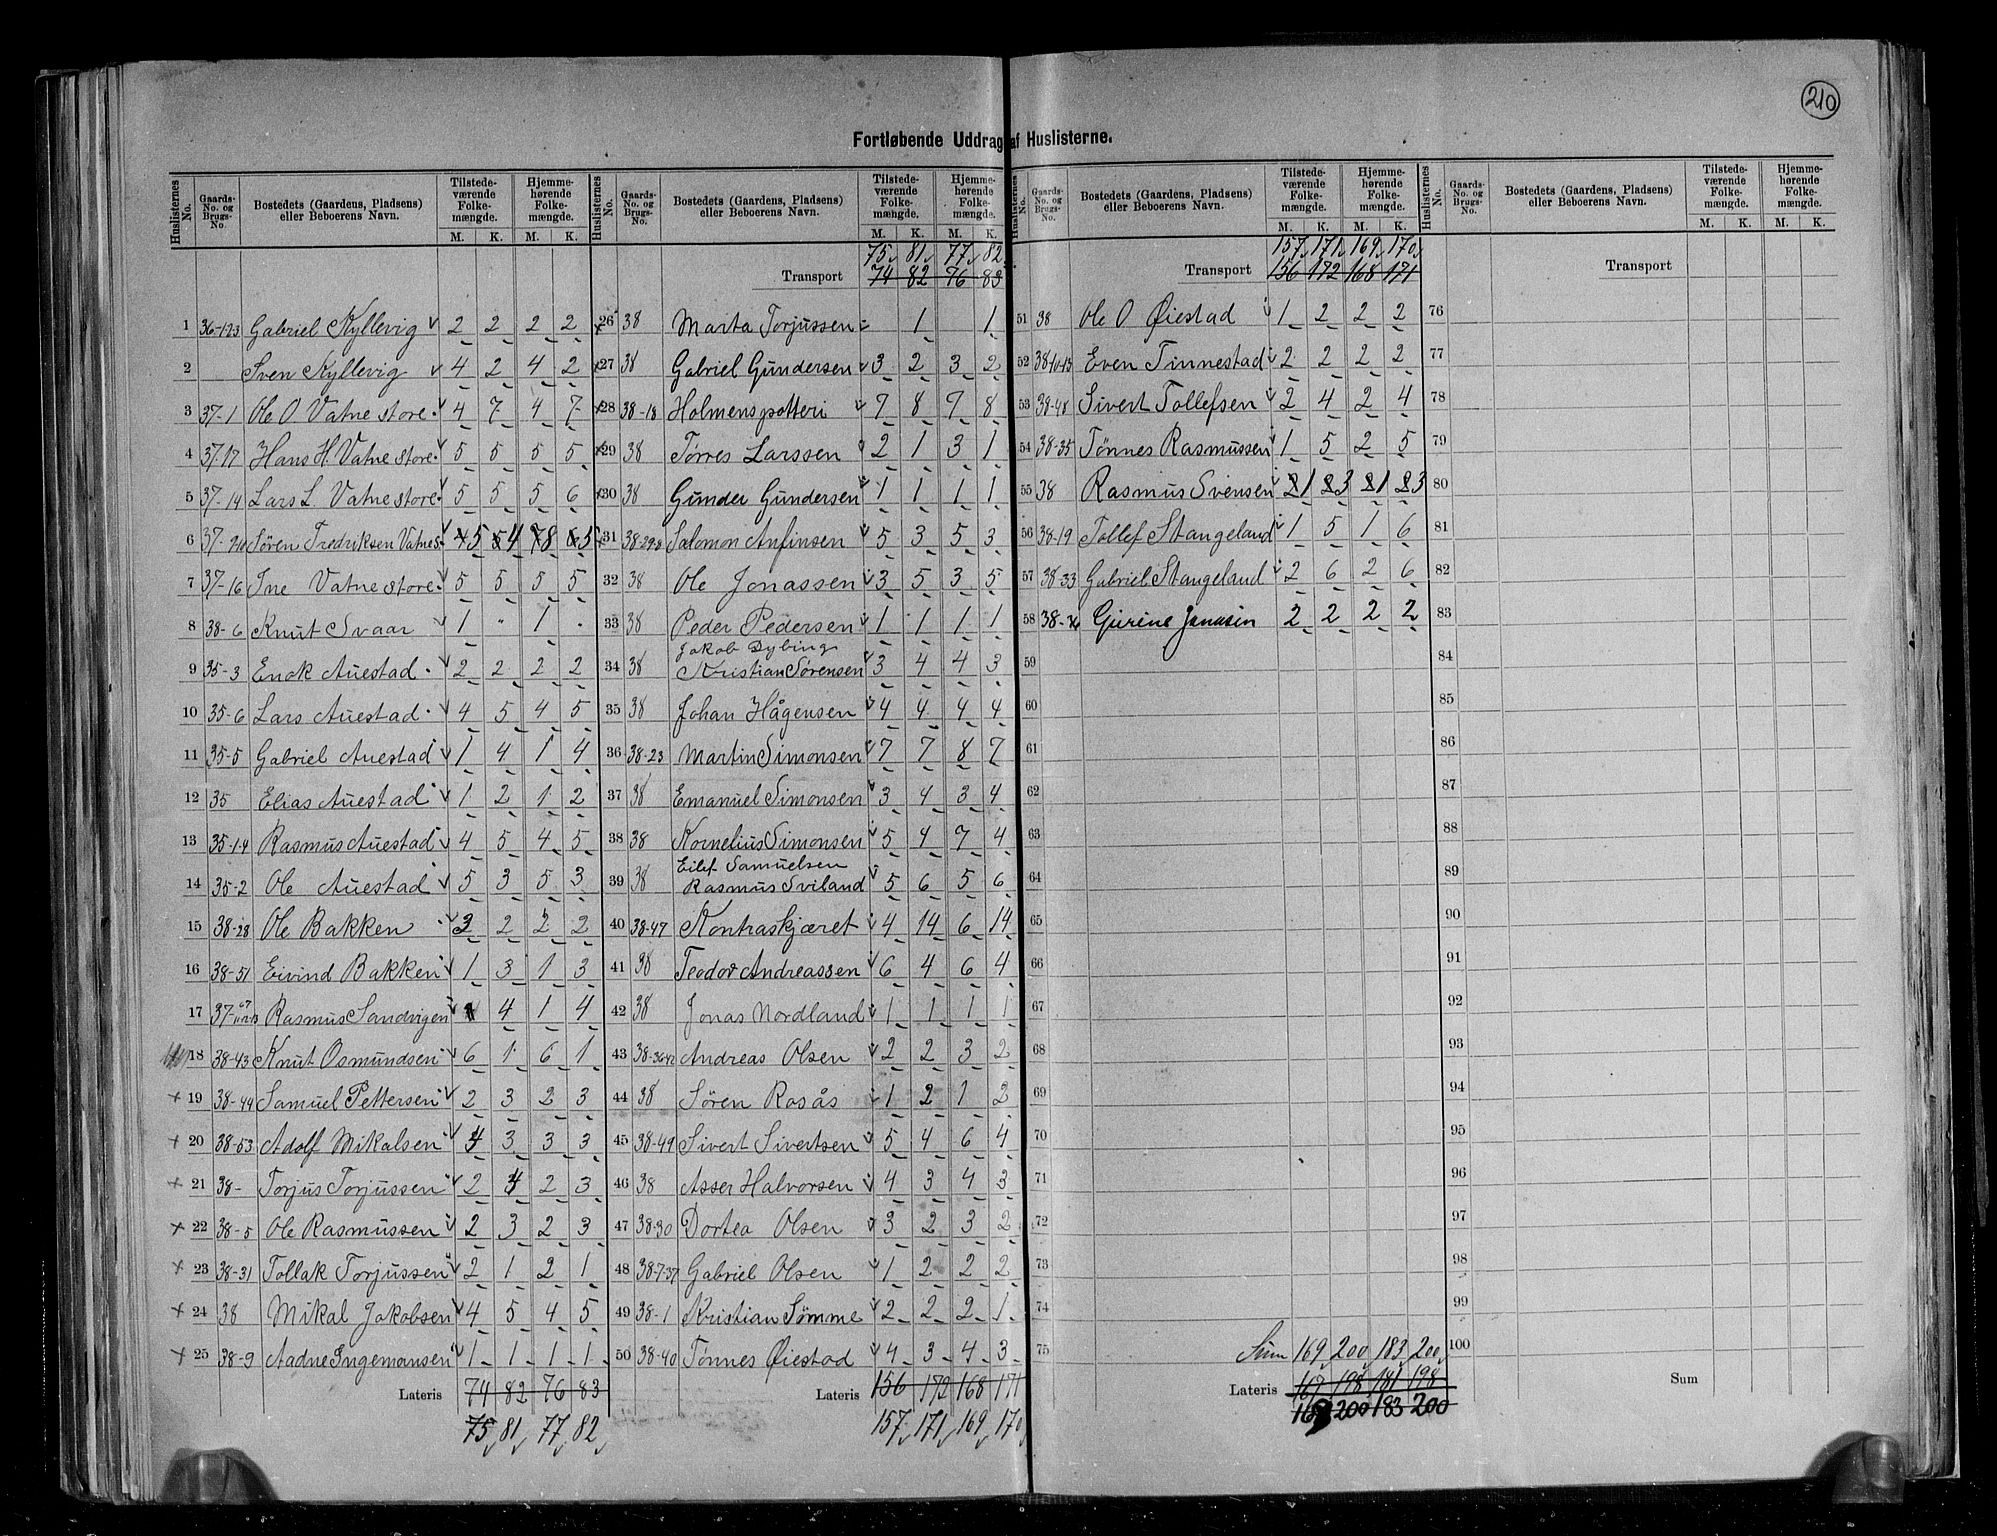 210
Fortløbende Uddrag af Huslisterne.
Huslisternes No. | Gaards-No. og Brugs-No. | Bostedets (Gaardens, Pladsens) eller Beboerens Navn. | Tilstedeværende Folkemængde. M. K. | Hjemmehørende Folkemængde. M. K.
1 36-1,2,3 Gabriel Kyllevig 2 2 2 2
2 Sven Kyllevig 4 2 4 2
3 37-1 Ole O. Vatne store 4 7 4 7
4 37-17 Hans H. Vatne store 5 5 5 5
5 37-14 Lars L. Vatne store 5 5 5 6
6 37- Søren Fredriksen Vatne s. 5 4 8 5
7 37-16 Ine Vatne store 5 5 5 5
8 38-6 Knut Svaar 1 " 1 "
9 35-3 Enok Auestad 2 2 2 2
10 35-6 Lars Auestad 4 5 4 5
11 35-5 Gabriel Auestad 1 4 1 4
12 35 Elias Auestad 1 2 1 2
13 35-1-4 Rasmus Auestad 4 5 4 5
14 35-2 Ole Auestad 5 3 5 3
15 38-28 Ole Bakken 2 2 2
16 38-51 Eivind Bakken 1 3 1 3
17 37- Rasmus Sandvigen 4 1 4
18 38-43 Knut Osmundsen 6 1 6 1
19 38-44 Samuel Pettersen 2 3 2 3
20 38-53 Adolf Mikalsen 3 3 3
21 38- Torjus Torjussen 2 2 3
22 38-5 Ole Rasmussen 2 3 2 3
23 38-31 Tollak Torjussen 2 1 2 1
24 38 Mikal Jakobsen 4 5 4 5
25 38-9 Aadne Ingemansen 1 1 1 1
Lateris 74 82 76 83
75 81 77 82
Huslisternes No. | Gaards-No. og Brugs-No. | Bostedets (Gaardens, Pladsens) eller Beboerens Navn. | Tilstedeværende Folkemængde. M. K. | Hjemmehørende Folkemængde. M. K.
75 81 77 82
Transport 74 82 76 83
26 38 Marta Torjussen - 1 1
27 38 Gabriel Gundersen 3 2 3 2
28 38-18 Holmens potteri 7 8 7 8
29 38 Tørres Larssen 2 1 3 1
30 38 Gunder Gundersen 1 1 1 1
31 38-29-8 Salomon Anfinsen 5 3 5 3
32 38 Ole Jonassen 3 5 3 5
33 38 Peder Pedersen 1 1 1 1
Jakob Dybing
34 38 Kristian Sørensen 3 4 4 3
35 38 Johan Hågensen 4 4 4 4
36 38-23 Martin Simonsen 7 7 8 7
37 38 Emanuel Simonsen 3 4 3 4
38 38 Kornelius Simonsen 5 4 7 4
Eilef Samuelsen
39 38 Rasmus Sviland 5 6 5 6
40 38-47 Kontraskjæret 4 14 6 14
41 38 Teodor Andreassen 6 4 6 4
42 38 Jonas Nordland 1 1 1 1
43 38-36-42 Andreas Olsen 2 2 3 2
44 38 Søren Rosås 1 2 1 2
45 38-49 Sivert Sivertsen 5 4 6 4
46 38 Asser Halvorsen 4 3 4 3
47 38-30 Dortea Olsen 3 2 3 2
48 38-7-37 Gabriel Olsen 1 2 2 2
49 38-1 Kristian Sømme 2 2 2 1
50 38-40 Tønnes Øiestad 4 3 4 3
Lateris 156 172 168 171
157 171 169 170
Huslisternes No. | Gaards-No. og Brugs-No. | Bostedets (Gaardens, Pladsens) eller Beboerens Navn. | Tilstedeværende Folkemængde. M. K. | Hjemmehørende Folkemængde. M. K.
157 171 169 170
Transport 156 172 168 171
51 38 Ole O Øiestad 1 2 2 2
52 38-10-13 Even Tinnestad 2 2 2 2
53 38-48 Sivert Tollefsen 2 4 2 4
54 38-35 Tønnes Rasmussen 1 5 2 5
55 38 Rasmus Svensen 1 3 1 3
56 38-19 Tollef Stangeland 1 5 1 6
57 38-33 Gabriel Stangeland 2 6 2 6
58 38- Gurine 2 2 2 2
59
60
61
62
63
64
65
66
67
68
69
70
71
72
73
74
75
Sum 169 200 183 200
Lateris 167 198 181 198
169 200 183 200
Huslisternes No. | Gaards-No. og Brugs-No. | Bostedets (Gaardens, Pladsens) eller Beboerens Navn. | Tilstedeværende Folkemængde. M. K. | Hjemmehørende Folkemængde. M. K.
Transport
76
77
78
79
80
81
82
83
84
85
86
87
88
89
90
91
92
93
94
95
96
97
98
99
100
Sum